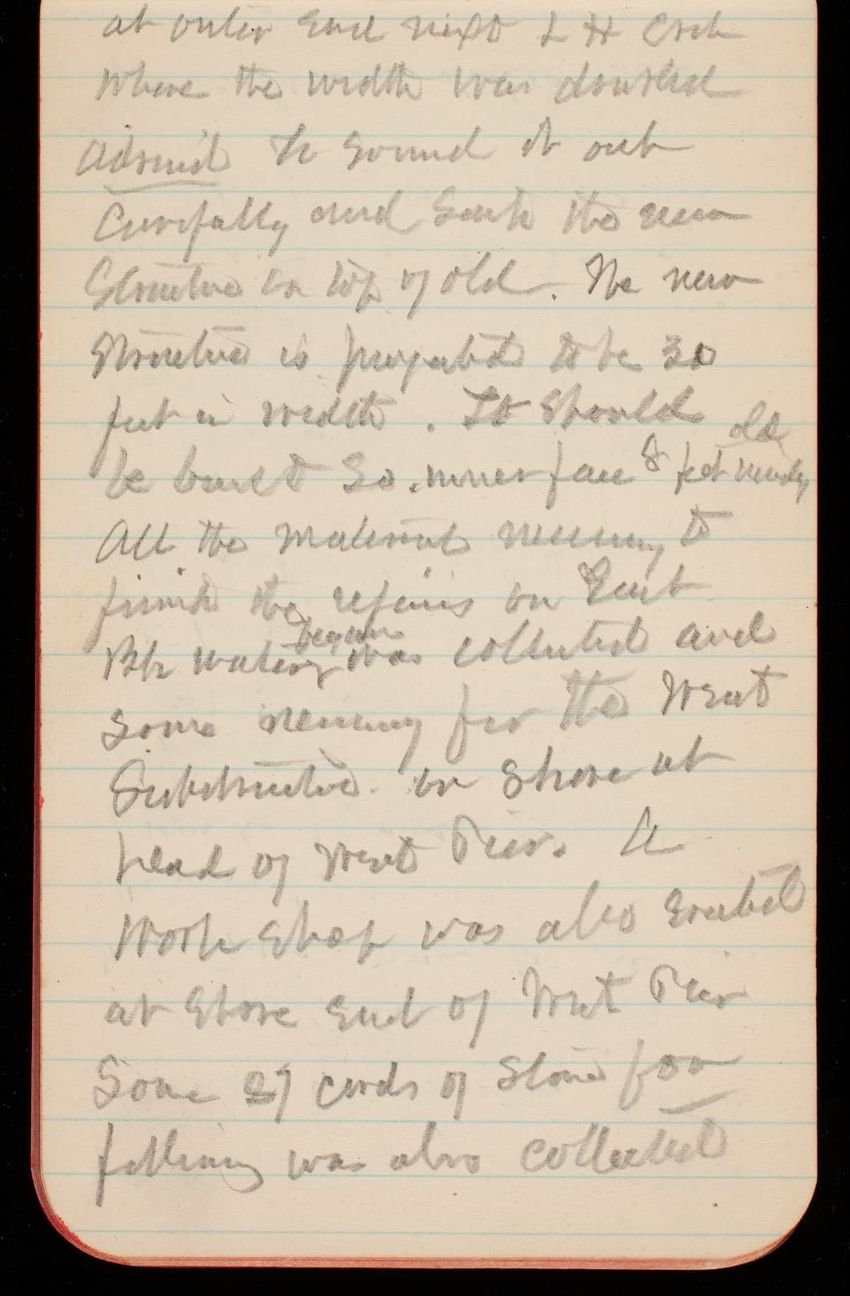 at outer End next L H Crib
Where the width was doubled
Advised to Sound it out
Carefully and Sink the new
Structure on top of old. The new
Structure is proposed to be 30
feet in width. It Should
be built So inner face 8 feet
All the material necessary to
finish the repairs on East
Bk water was collected and
Some necessary for the West
Substructure on Shore at
head of West Pier. A
Work Shop was also Erected
at Shore End of West Pier
Some 27 cords of Stone for
filling was also collected